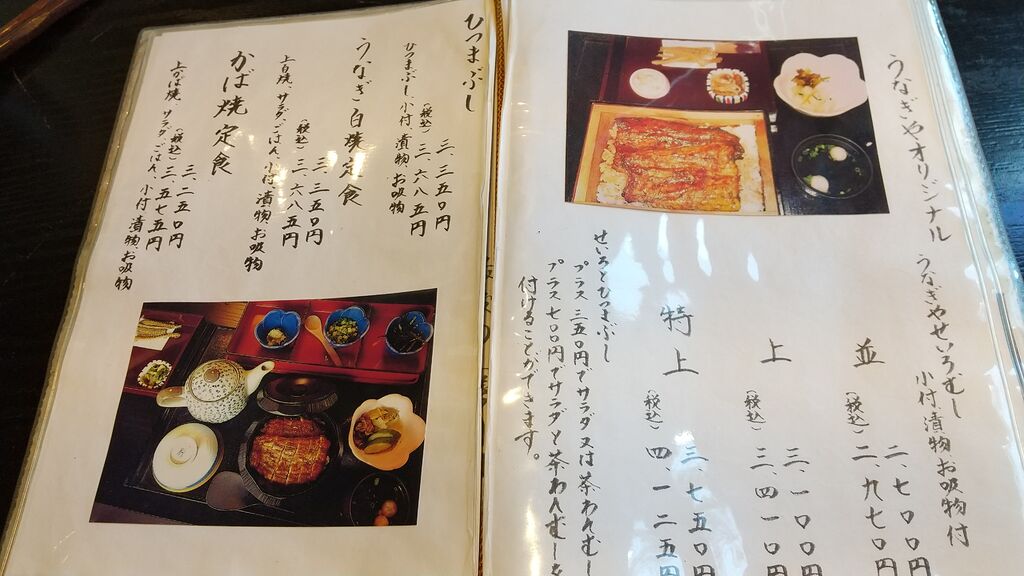 うなぎやオリジナル
うなぎやせいろむし
小付漬物お吸物付
並
二、七〇〇円
(税込)二、九七〇円
上
三、一〇〇円
(税込)三、四一〇円
特上
三、七五〇円
(税込)四、一二五円
せいろとひつまぶし
プラス三五〇円でサラダ又は茶わんむし
プラス七〇〇円でサラダと茶わんむしを
付けることができます。
ひつまぶし
三、三五〇円
(税込)三、六八五円
ひつまぶし小付漬物お吸物
うなぎ白焼定食
三、三五〇円
(税込)三、六八五円
上白焼サラダ、ごはん、小付漬物、お吸物
かば焼定食
三、二五〇円
(税込)三、五七五円
上かば焼サラダごはん、小付漬物お吸物